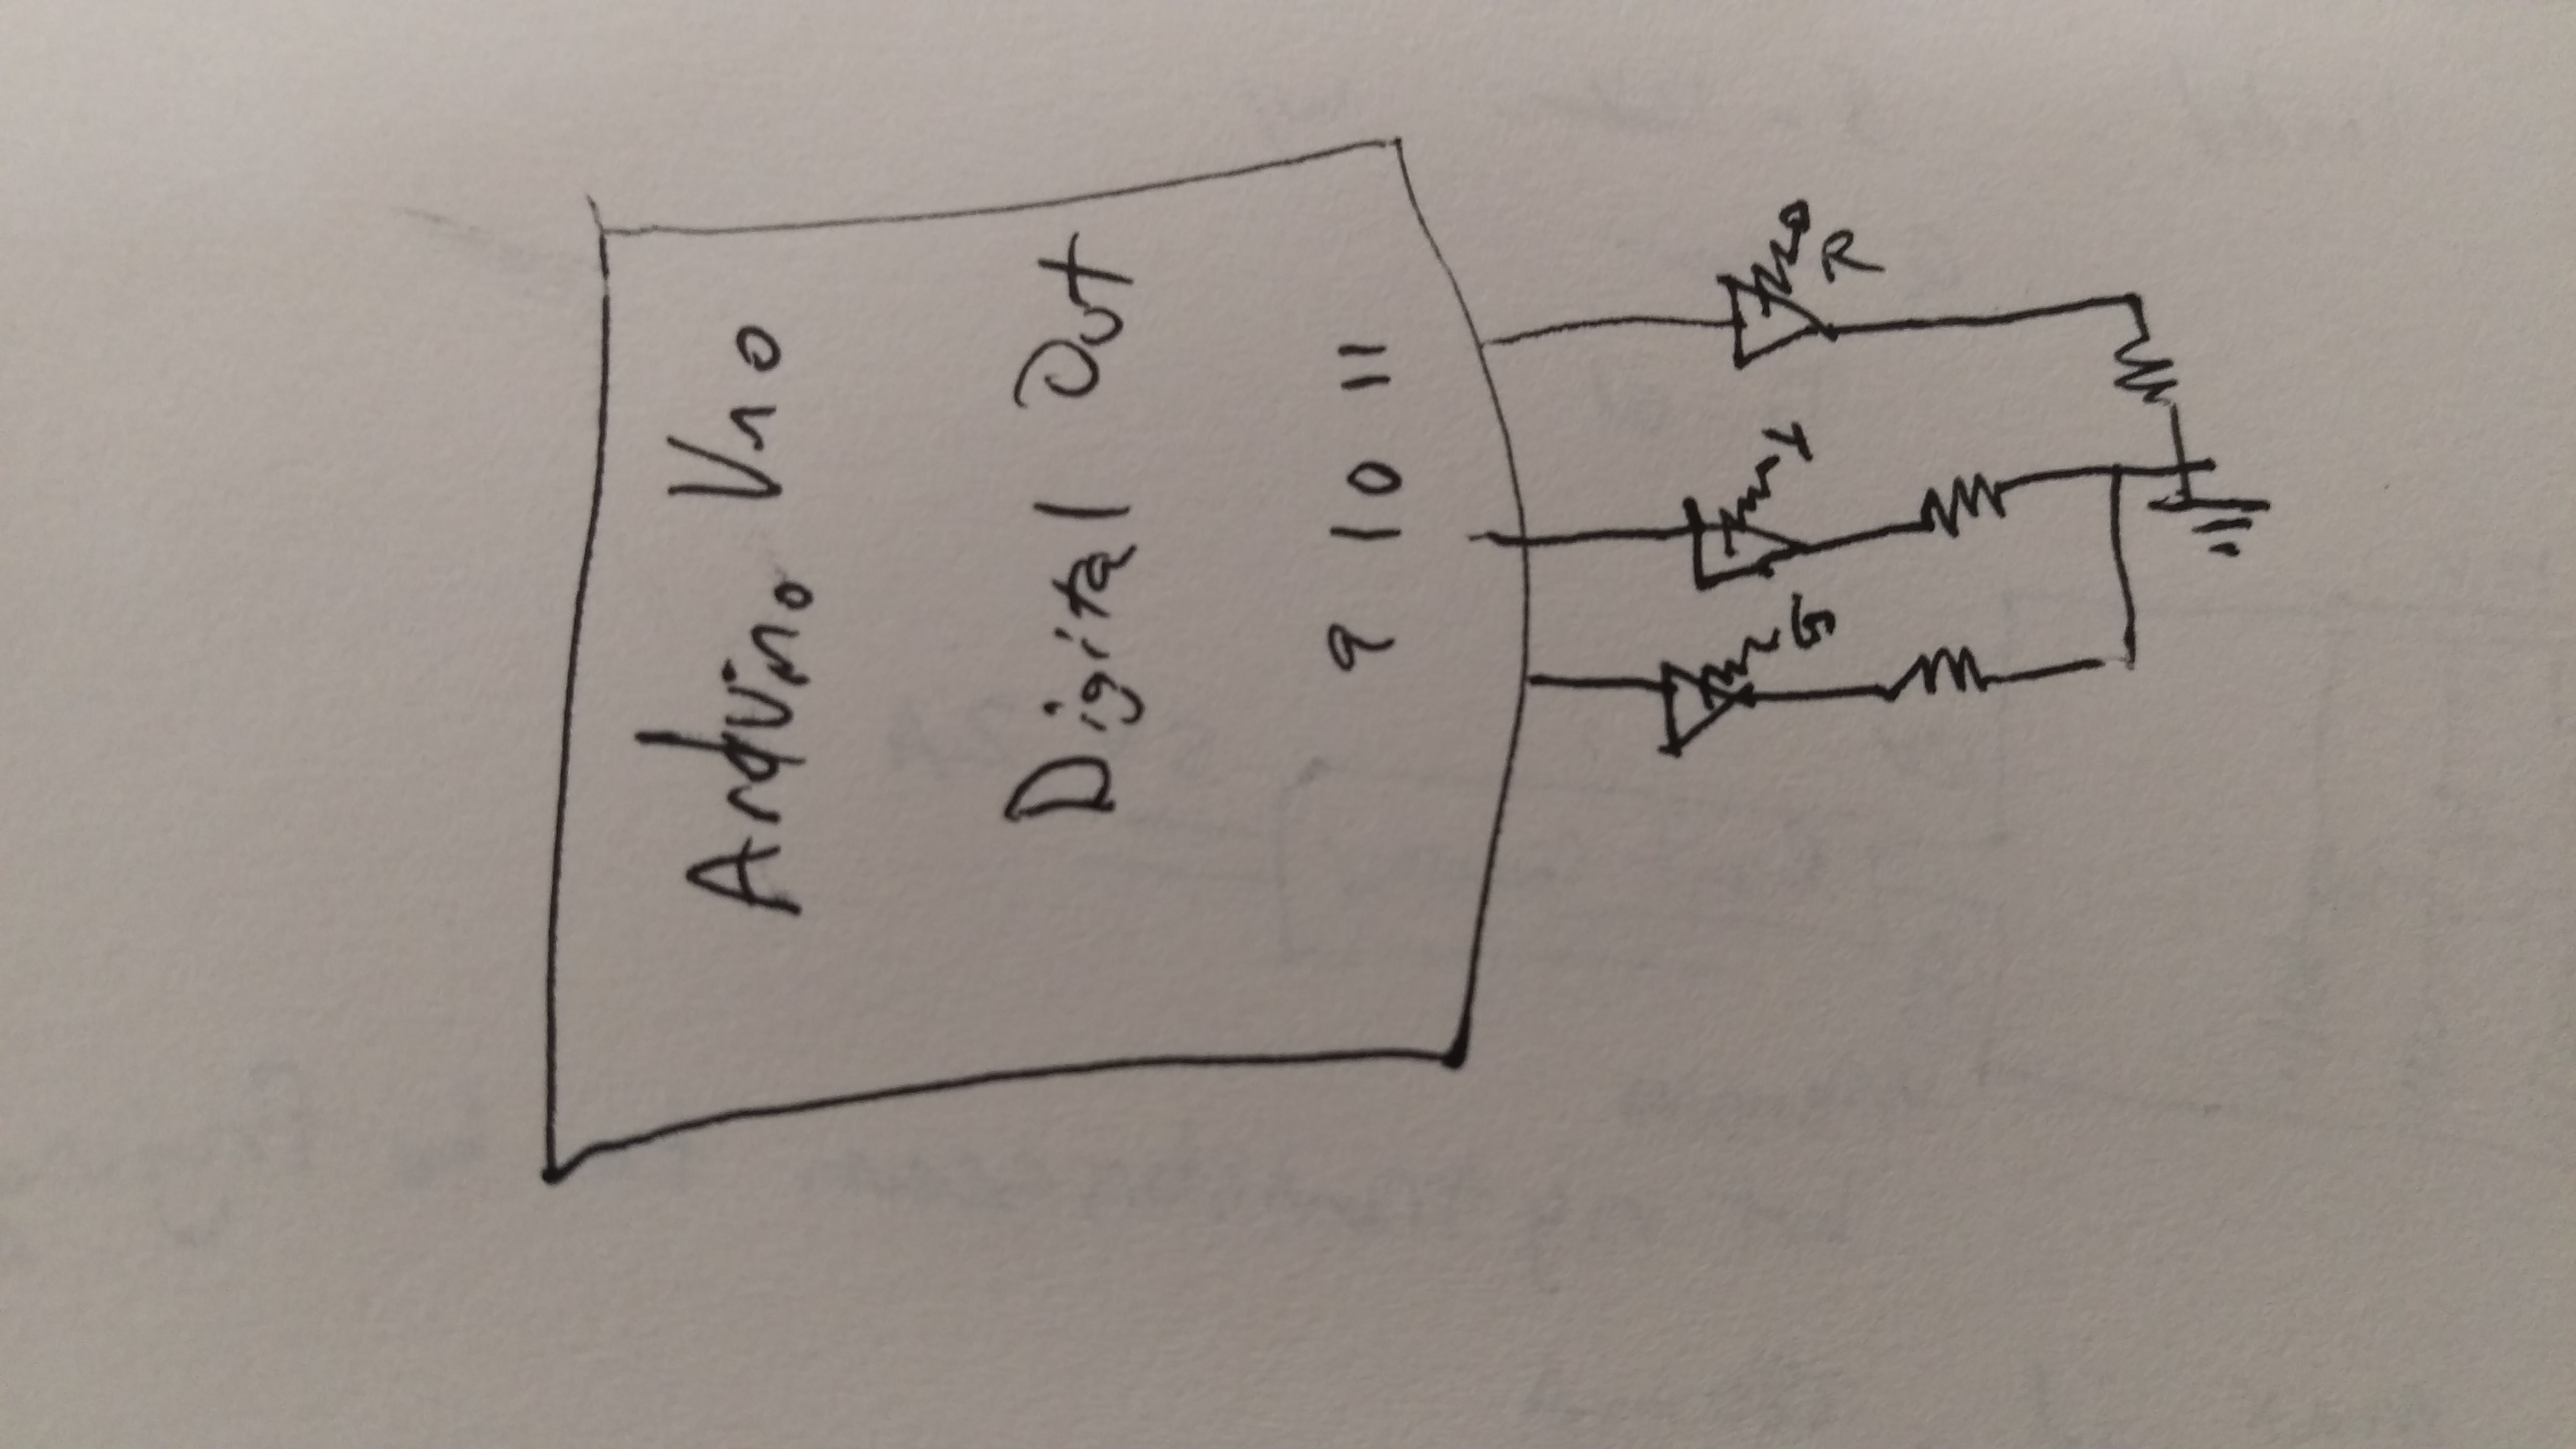 Arduino Uno
Digital Out
9 10 11
G Y R